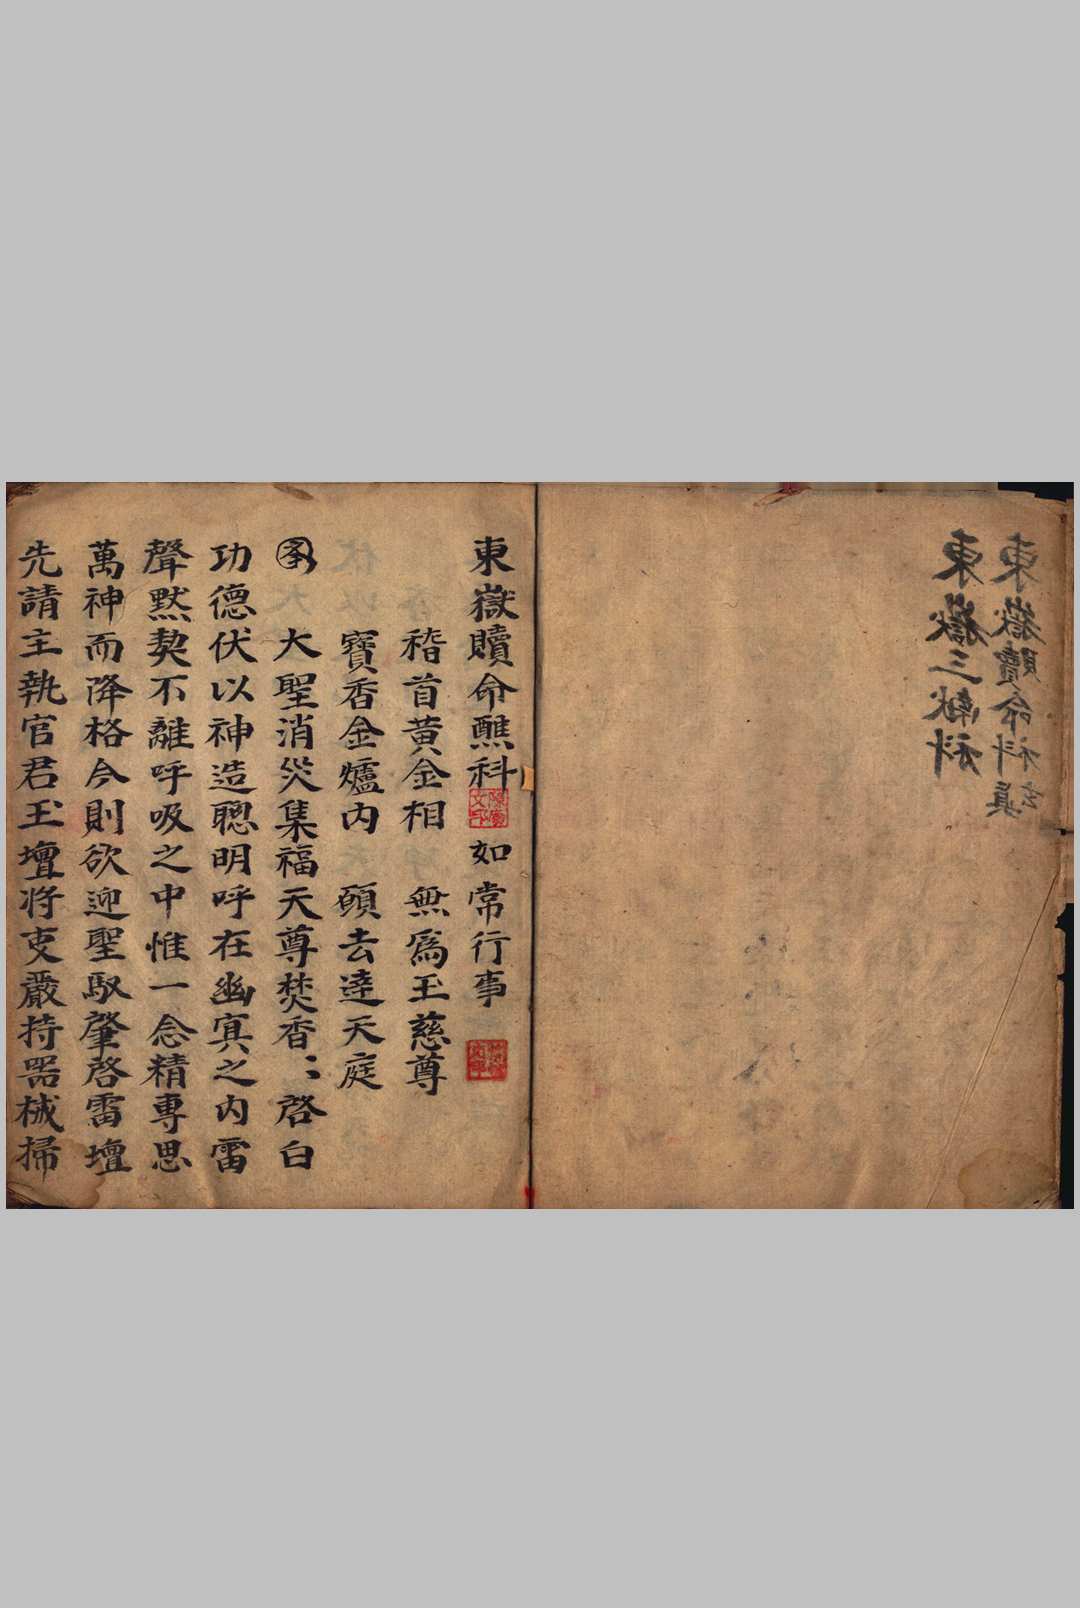 東嶽贖命科
東嶽三献科
東嶽贖命醮科 如常行事
稽首黄金相 無爲玉慈尊
寶香金爐内 願去達天庭
大聖消災集福天尊焚香〻啓白
功德伏以神造聰明呼在幽冥之内雷
聲黙契不離呼吸之中惟一念精專思
萬神而降格今則欲迎聖馭肇啓雷壇
先請主執官君玉壇将吏嚴持噐械掃